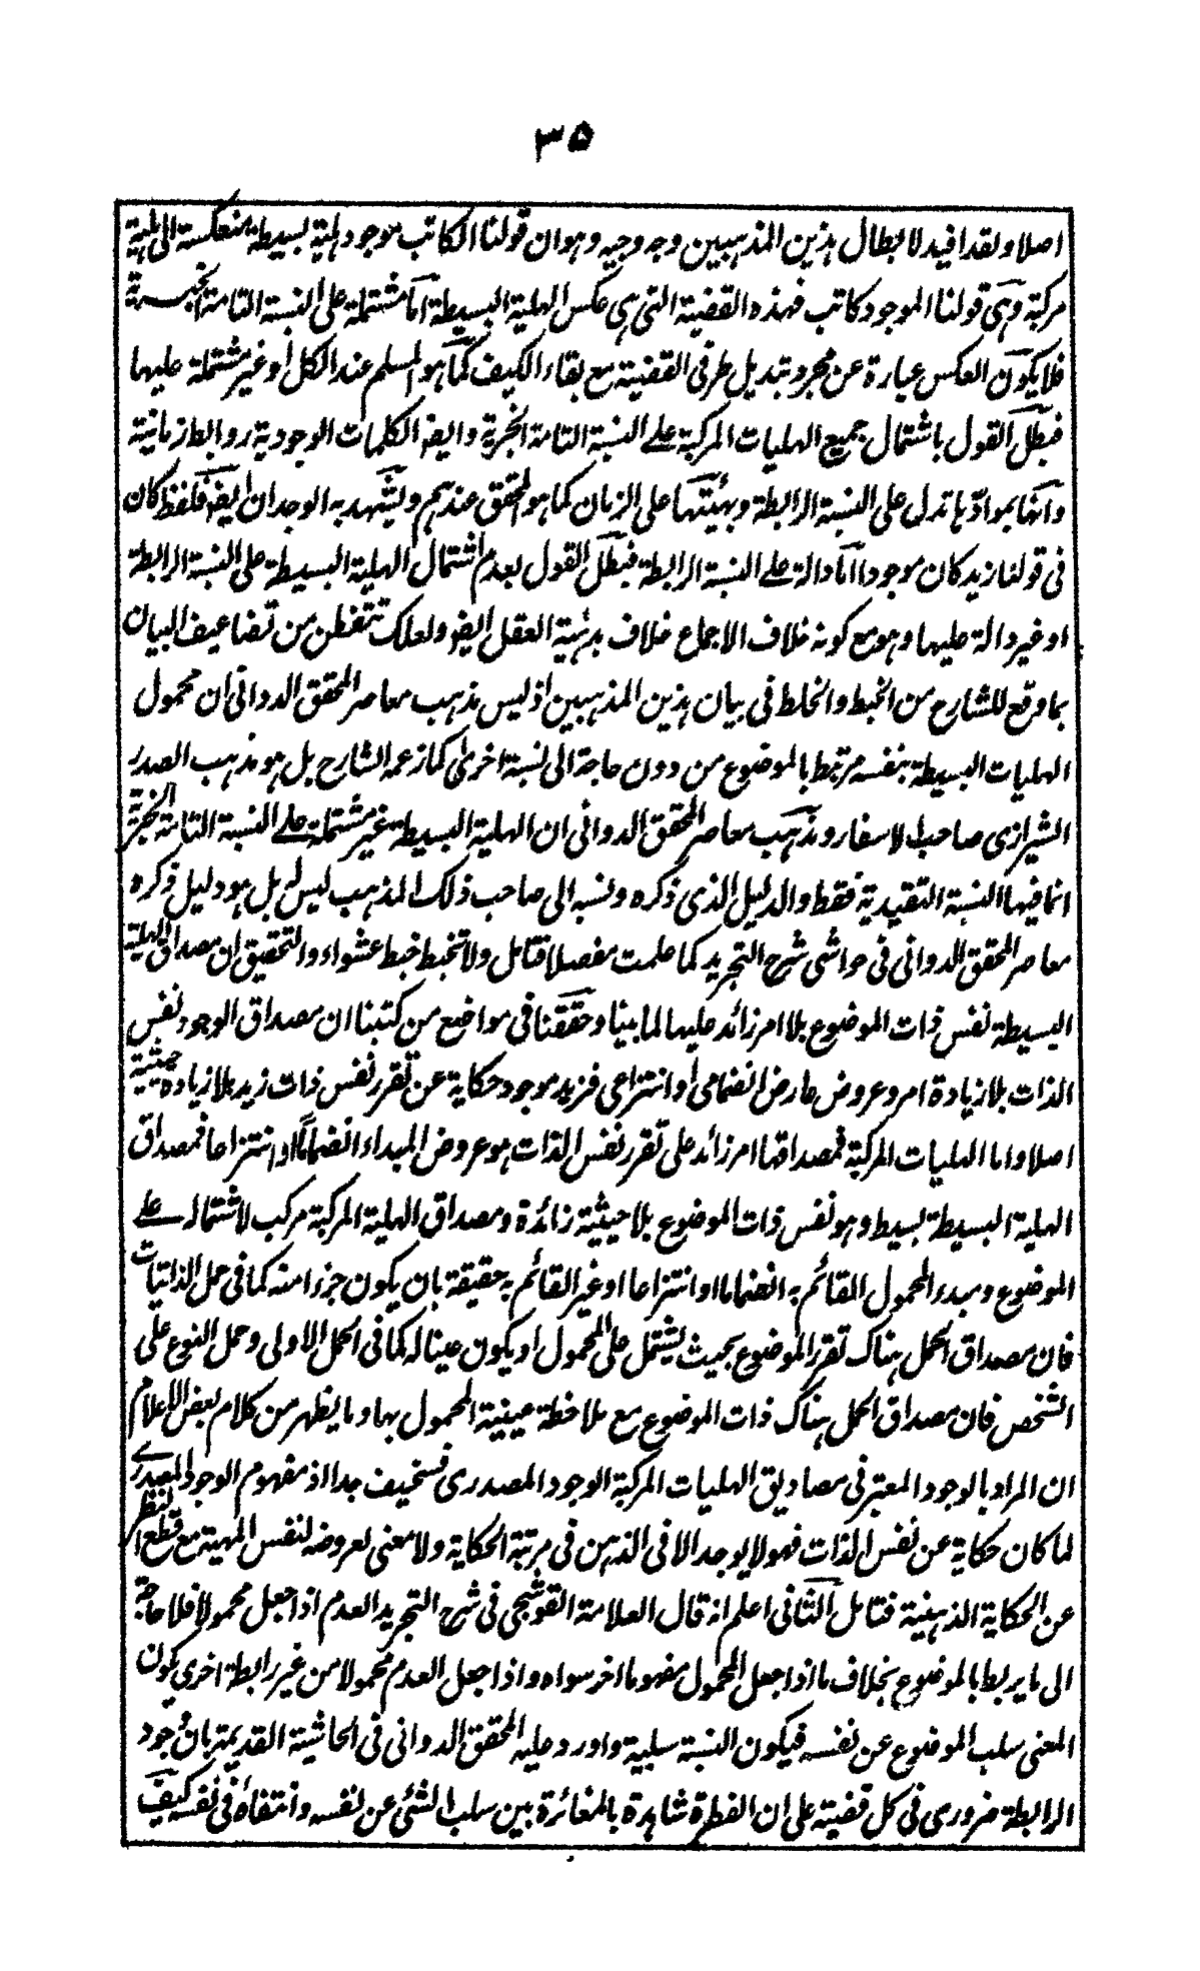 ٣٥
اصلا ولقد افيد لابطال هذين المذهبين وجه وجيه وهو ان قولنا الكاتب موجود هلية بسيطة منعكسة الى هلية
مركبة وهى قولنا الموجود كاتب فهذه القضية التى هى عكس الهلية البسيطة اما مشتملة على النسبة التامة الخبرية
فلا يكون العكس عبارة عن مجرد تبديل طرفى القضية مع بقاء الكيف كما هو المسلم عند الكل او غير مشتملة عليها
فبطل القول باشتمال جميع الهليات المركبة على النسبة التامة الخبرية وايضا الكلمات الوجودية روابط زمانية
وانها بموادها تدل على النسبة الرابطة وبهيئتها على الزمان كما هو المحقق عندهم ويشهد به الوجدان ايضا فلفظ كان
فى قولنا زيد كان موجودا اما دالة على النسبة الرابطة فبطل القول بعدم اشتمال الهلية البسيطة على النسبة الرابطة
او غير دالة عليها وهو مع كونه خلاف الاجماع خلاف بديهية العقل ايضا ولعلك تتفطن من تضاعيف البيان
بما وقع للشارح من الخبط والخلط فى بيان هذين المذهبين اذ ليس مذهب معاصر المحقق الدوانى ان محمول
الهليات البسيطة بنفسه مرتبط بالموضوع من دون حاجة الى نسبة اخرى كما زعمه الشارح بل هو مذهب الصدر
الشيرازى صاحب الاسفار ومذهب معاصر المحقق الدوانى ان الهلية البسيطة غير مشتملة على النسبة التامة الخبرية
انما فيها النسبة التقيدية فقط والدليل الذى ذكره ونسبه الى صاحب ذلك المذهب ليس له بل هو دليل ذكره
معاصر المحقق الدوانى فى حواشى شرح التجريد كما علمت مفصلا فتامل ولا تخبط خبط عشواء والتحقيق ان مصداق الهلية
البسيطة نفس ذات الموضوع بلا امر زائد عليها لما بينا وحققنا فى مواضع من كتبنا ان مصداق الوجود نفس
الذات بلا زيادة امر وعروض عارض انضمامى او انتزاعى فزيد موجود حكاية عن تقرر نفس ذات زيد بلا زيادة حيثية
اصلا واما الهليات المركبة فمصداقها امر زائد على تقرر نفس الذات هو عروض المبداء انضماما او انتزاعا فمصداق
الهلية البسيطة بسيط وهو نفس ذات الموضوع بلا حيثية زائدة ومصداق الهلية المركبة مركب لاشتماله على
الموضوع ومبدء المحمول القائم به انضماما او انتزاعا او غير القائم به حقيقة بان يكون جزء امنه كما فى حمل الذاتيات
فان مصداق الحمل هناك تقرر الموضوع بحيث يشتمل على المحمول او يكون عينا له كما فى الحمل الاولى وحمل النوع على
الشخص فان مصداق الحمل هناك ذات الموضوع مع ملاحظة عينية المحمول بها وما يظهر من كلام بعض الاعلام
ان المراد بالوجود المعتبر فى مصاديق الهليات المركبة الوجود المصدرى فسخيف جدا اذ مفهوم الوجود المصدرى
لما كان حكاية عن نفس الذات فهو لا يوجد الا فى الذهن فى مرتبة الحكاية ولا معنى لعروضه لنفس المهية مع قطع النظر
عن الحكاية الذهنية فتامل الثانى اعلم انه قال العلامة القوشجى فى شرح التجريد العدم اذا جعل محمولا فلا حاجة
الى ما يربط بالموضوع بخلاف ما اذا جعل المحمول مفهوما اخر سواه واذا جعل العدم محمولا من غير رابطة اخرى يكون
المعنى سلب الموضوع عن نفسه فيكون النسبة سلبية واورد عليه المحقق الدوانى فى الحاشية القديمة بان وجود
الرابطة ضرورى فى كل قضية على ان الفطرة شاهدة بالمغائرة بين سلب الشئ عن نفسه وانتفائه فى نفسه كيف